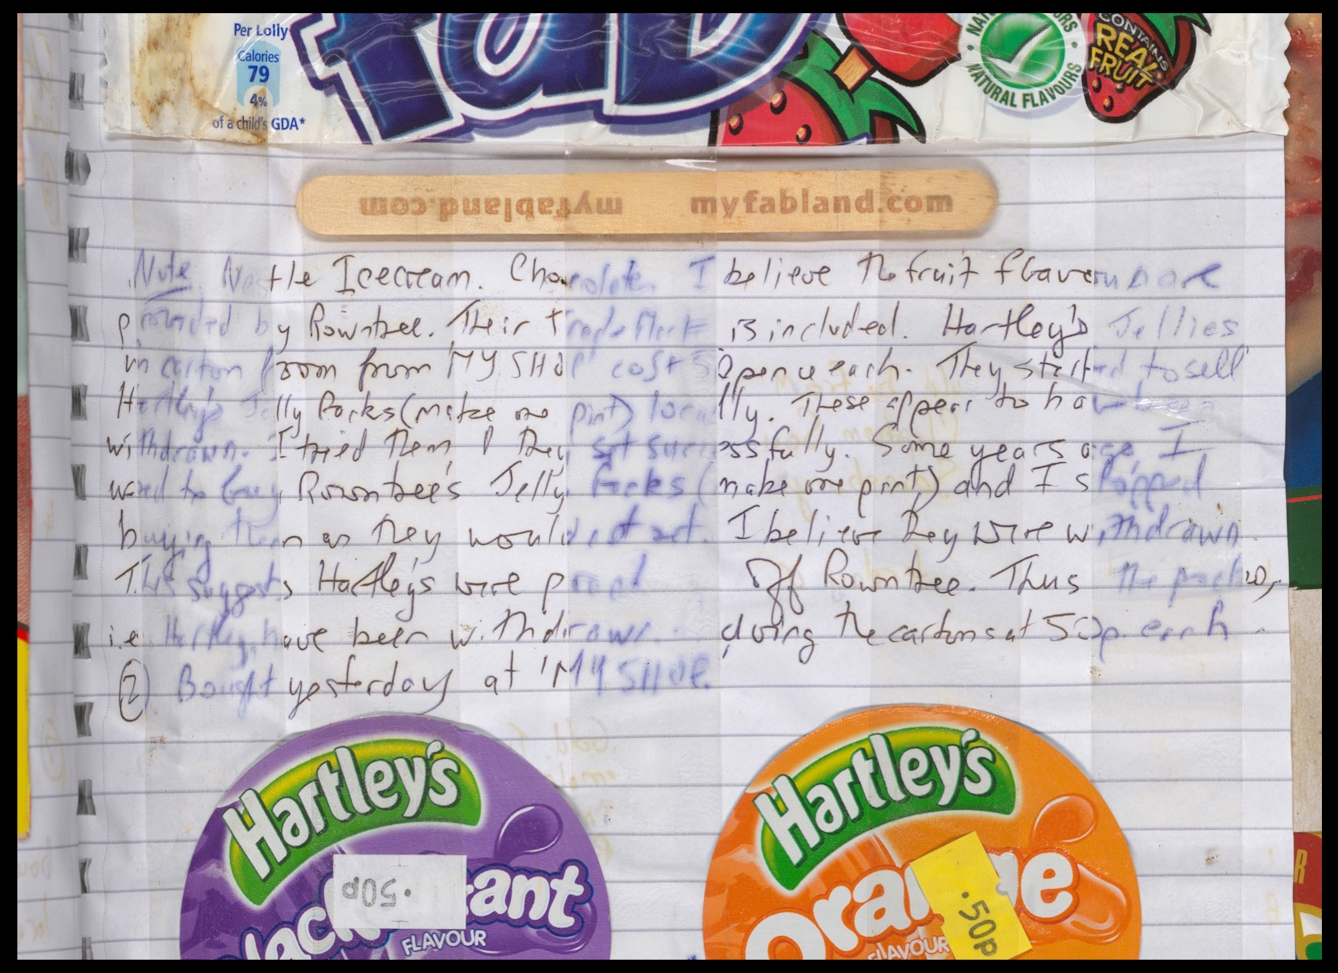 Per Lolly
Calories
79
4%
of a child's GDA*
FAB
NATURAL FLAVOURS
CONTAINS
REAL
FRUIT
myfabland.com
myfabland.com
Note. Nestle Icecream. Chocolate. I believe the fruit flavours are
provided by Rowntree. Their Trade Mark is included. Hartley's Jellies
in carton from 'MY SHOP' cost 50 pence each. They started to sell
Hartley's Jelly Packs (make one pint) locally. These appear to have been
withdrawn. I tried them & they set successfully. Some years ago I
used to buy Rowntree's Jelly Packs (make one pint) and I stopped
buying them as they would not set. I believe they were withdrawn.
This suggests Hartley's were Off Rowntree. Thus the
i.e. Hartley, have been withdrawn. the cartons at 50p. each.
② Bought yesterday at 'MY SHOP.
Hartley's
Hartley's
Blackcurrant
Orange
.50p
.50p
FLAVOUR
FLAVOUR